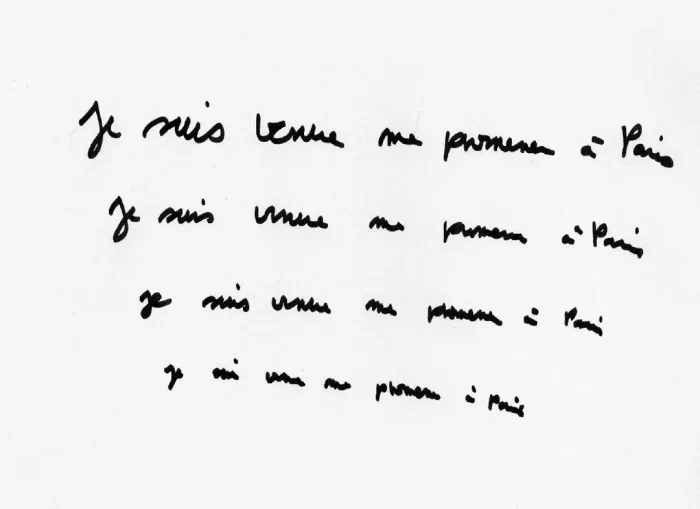 Je suis venue me promener à Paris
Je suis venue me promener à Paris
je suis venue me promener à Paris
je suis venue me promener à Paris